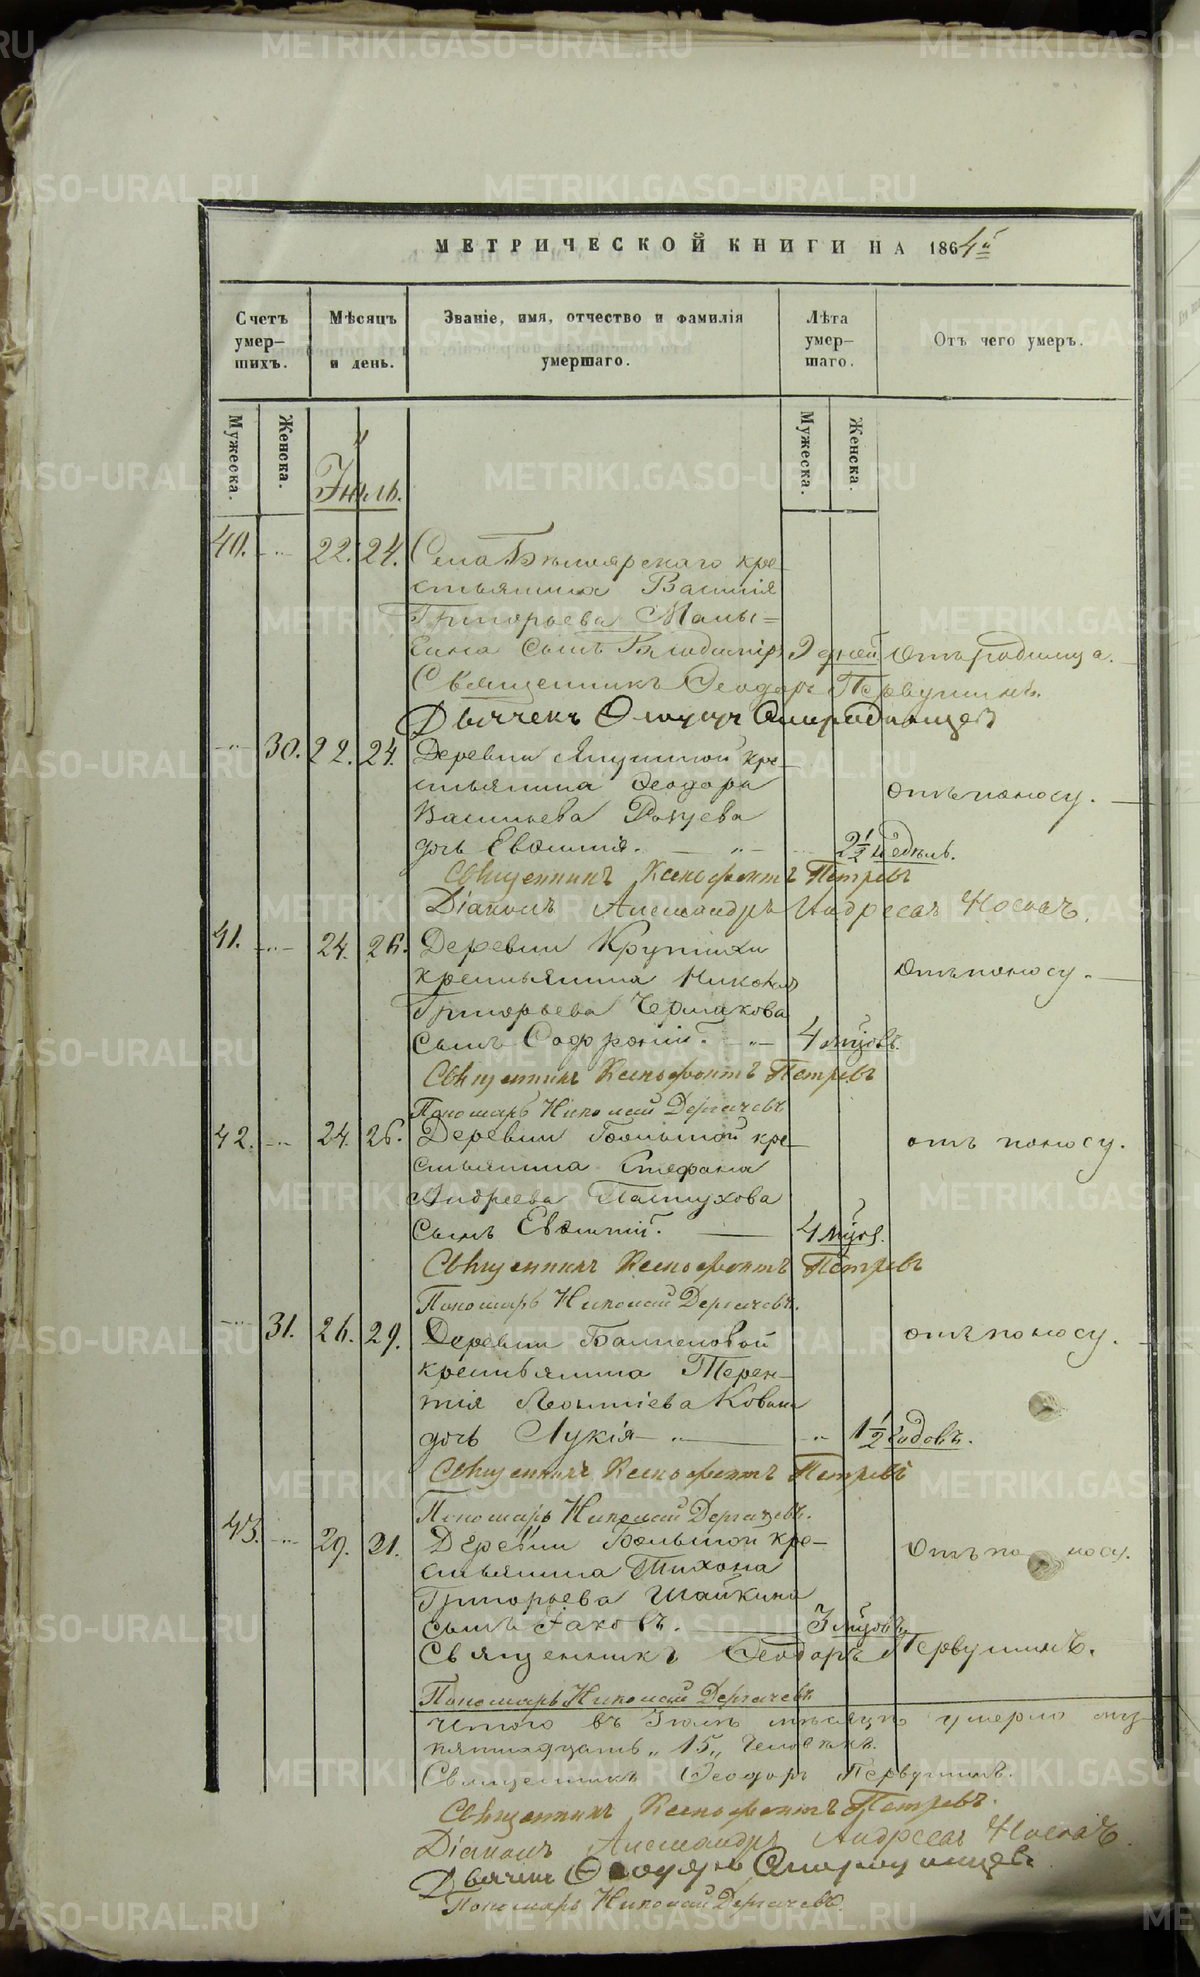 МЕТРИЧЕСКОЙ КНИГИ НА 1864й
Счетъ умер-шихъ.
Мѣсяцъ и день.
Званіе, имя, отчество и фамилія умершаго.
Лѣта умер-шаго.
Отъ чего умеръ.
Мужеска.
Женска.
Мужеска.
Женска.
Іюль.
40. 22. 24. Села Бѣлоярскаго кре-
стьянина Василія
Григорьева Мамы=
Сынъ Владиміръ 9 дней отъ родимца.
Священникъ Ѳеодоръ Первушинъ.
Дьячекъ
30. 22. 24. Деревни кре-
стьянина Ѳеодора
Васильева отъ поносу.
дочь Евѳимія. 2½ недѣль.
Священникъ Ксенофонтъ Петровъ
Діаконъ Александръ Андреевъ Носовъ.
41. 24. 26. Деревни Крутихи
крестьянина Николая отъ поносу.
Григорьева Чермакова
сынъ Софроній. 4 мцовъ.
Священникъ Ксенофонтъ Петровъ
Пономарь Николай Дергачевъ
42. 24. 26. Деревни Большой кре- отъ поносу.
стьянина Стефана
Андреева Пастухова
сынъ Евѳимій. 4 мцов.
Священникъ Ксенофонтъ Петровъ
Пономарь Николай Дергачевъ.
31. 26. 29. Деревни отъ поносу.
крестьянина Терен-
тія Леонтіева
дочь Лукія 1½ годовъ.
Священникъ Ксенофонтъ Петровъ
Пономарь Николай Дергачевъ.
43. 29. 31. Деревни Большой кре-
стьянина Тихона отъ поносу.
Григорьева Шайкина
сынъ Іаковъ. 3 мцовъ
Священникъ Ѳеодоръ Первушинъ.
Пономарь Николай Дергачевъ
Итого въ Іюлѣ мѣсяцѣ умерло
пятнадцать „15„ человѣкъ.
Священникъ Ѳеодоръ Первушинъ.
Священникъ Ксенофонтъ Петровъ.
Діаконъ Александръ Андреевъ Носовъ.
Дьячекъ
Пономарь Николай Дергачевъ.
METRIKI.GASO-URAL.RU